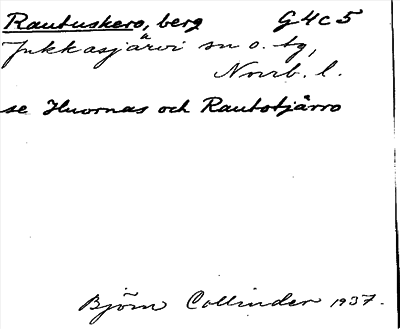 Rautuskero, berg G4c5
Jukkasjärvi sn o. tg,
Norrb. l.
se Huornas och Rautotjårro
Björn Collinder 1937.